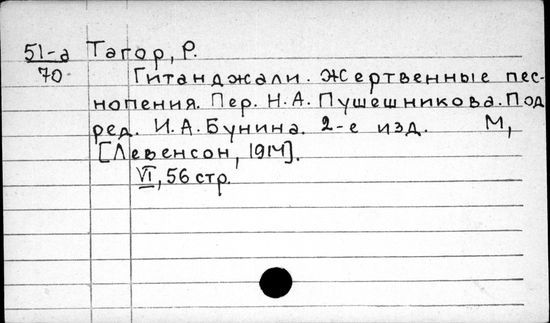 51-а Тагор, Р.
70 Гитанджали. Жертвенные пес-
нопения. Пер. Н.А. Пушешникова. Под
ред. И.А. Бунина. 2-е изд. М,
[Левенсон, 1914].
VI, 56 стр.